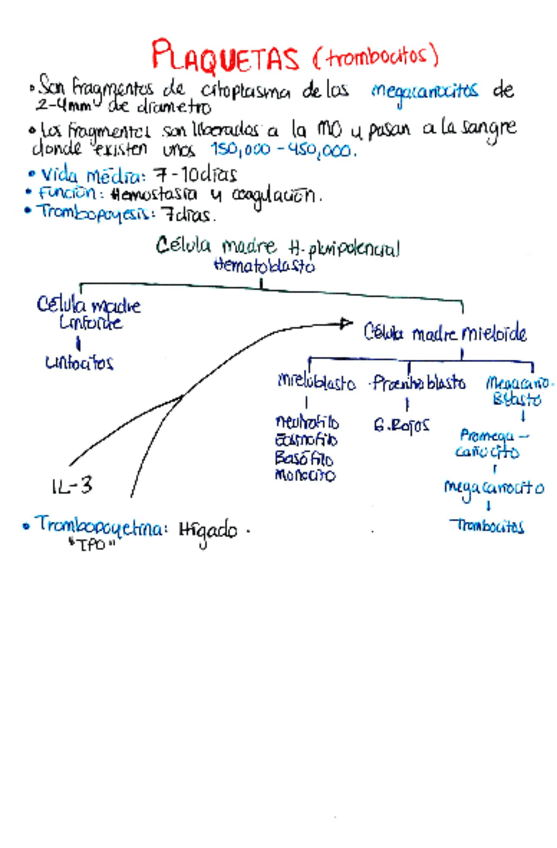 PLAQUETAS (trombocitos)
• Son fragmentos de citoplasma de los megacariocitos de
2-4mm de diametro
• Los fragmentos son liberados a la MO y pasan a la sangre
donde existen unos 150,000 - 450,000.
• Vida média: 7-10 dias
• Función: Hemostasia y coagulación.
• Trombopoyesis: 7 dias.
Célula madre H. pluripotencial
Hematoblasto
Célula madre
Linfoide
Linfocitos
Célula madre mieloide
Mieloblasto
Neutrofilo
Eosinofilo
Basófilo
Monocito
Proeritroblasto
G. Rojos
Megacario-
Blasto
Promega-
cariocito
Megacariocito
Trombocitos
IL-3
• Trombopoyetina: Hígado.
"TPO"